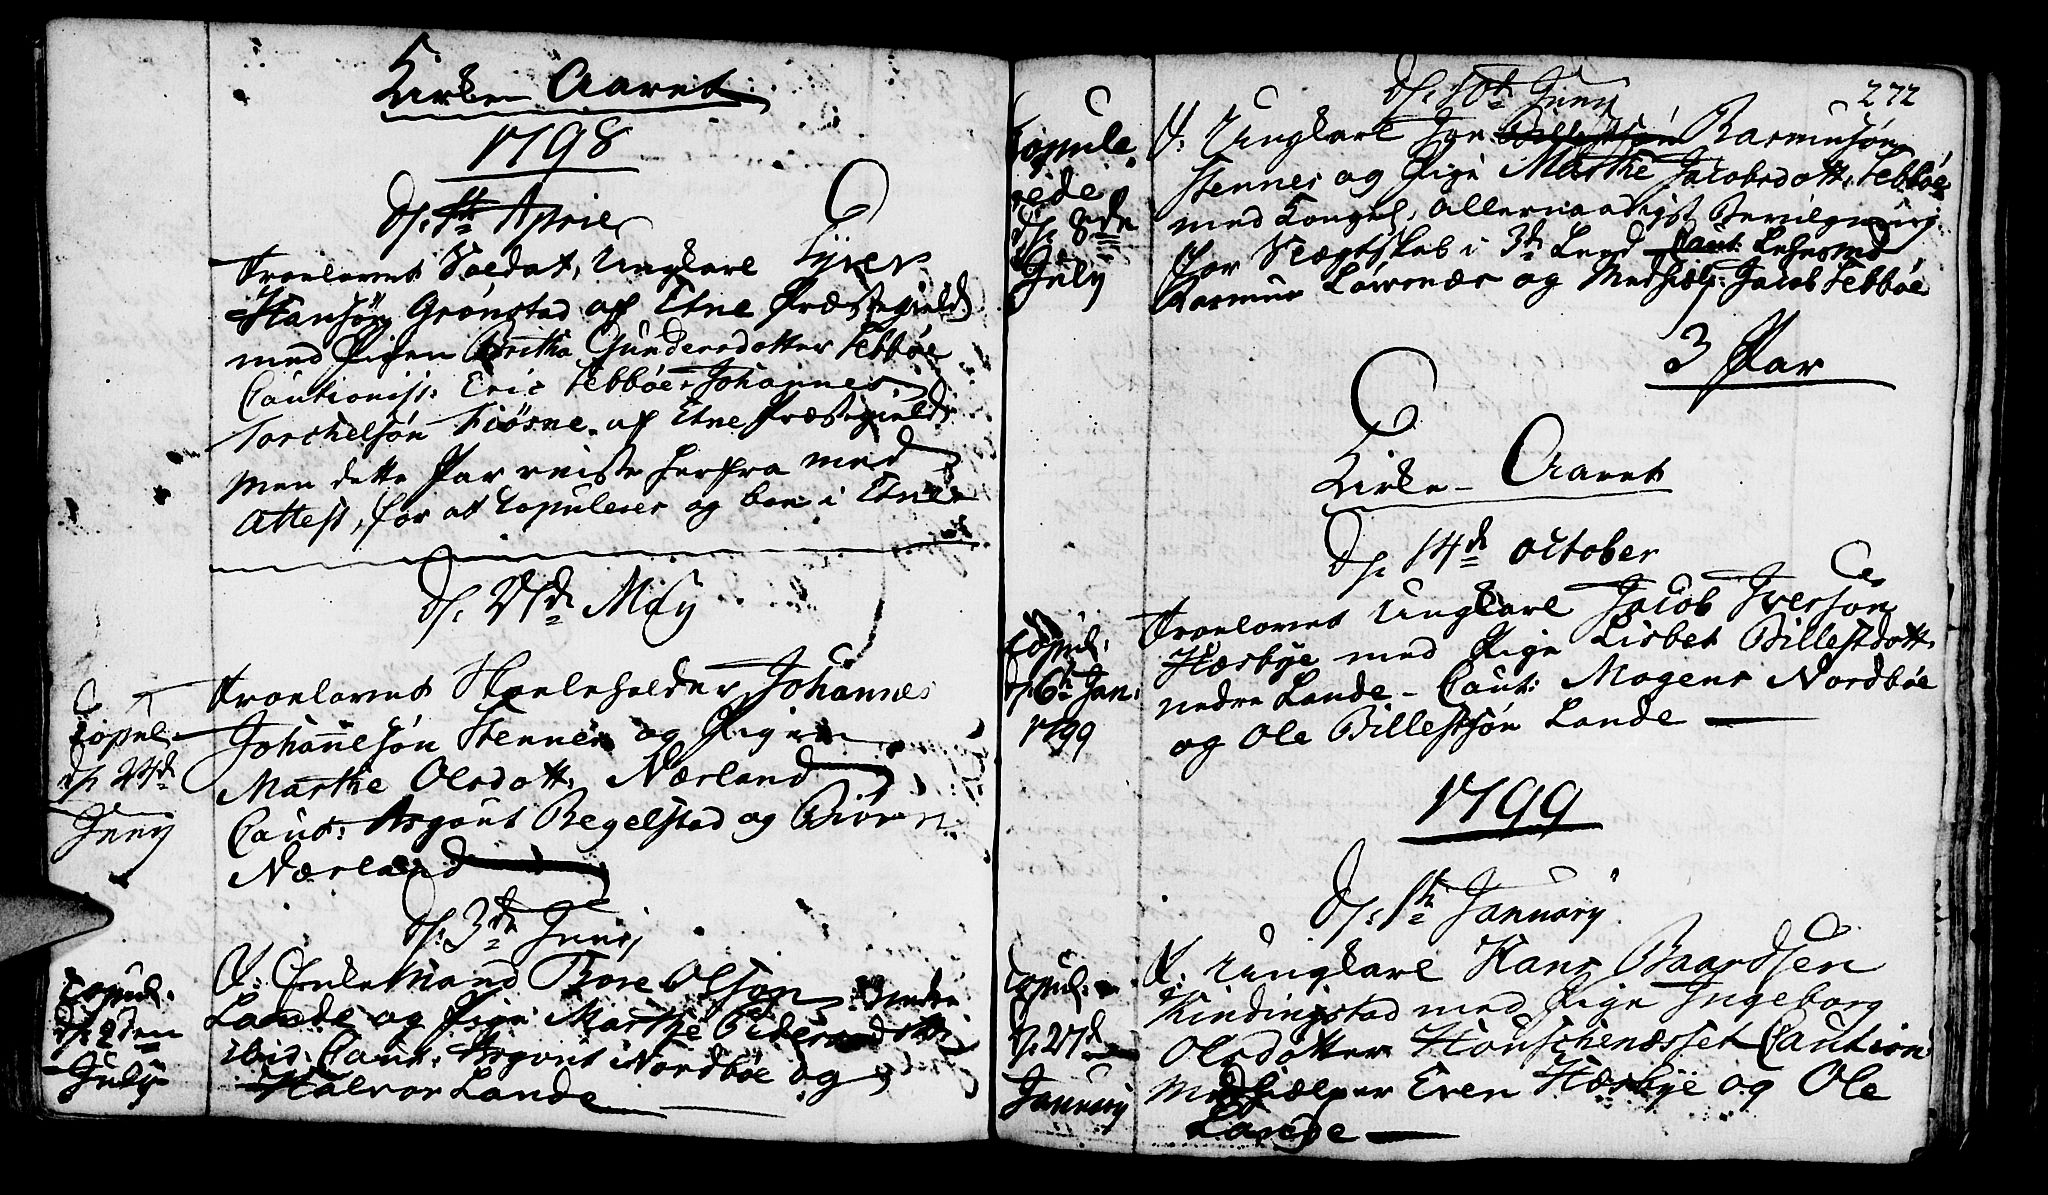 Kirke Aaret
1798
d. 1te April
Troelovet Soldat, Ungkarl Sjver
Hansøn Grønstad af Etne Præstegield
med Pigen Britha Gundersdotter Tebbøe
Cautionist: Eric Tebbøe Johannes
Torchelsøn Fiøsne af Etne Præstegield
Men dette Par reiste herfra med
Attest, for at Copuleres og boe i Etne
d. 27de May
Copul.
d. 24de
Juny
Troelovet Johannes
Johannesøn Stennes og Pigen
Marthe Olsdott. Nærland
Caut: Asgout Regelstad og Biørn
Nærland
d. 3de Juny
Copul.
d. 2den
July
T. Enke Mand Tore Olson Nedre
Lande og Pige Marthe
ibid. Caut: Asgout Nordbøe og
Halvor Lande
272
d. 10de Juny
Copule
rede
d. 8de
July
T. Ungkarl Rasmusøn
Stennes og Pige Marthe Jacobsdott. Tebbøe
med Kongel. allernaadigst Bevilgning
for Slægtskab i 3de Leed Caut: Lehnsmd
Rasmus Løvsnæs og Medhielp: Jacob Tebbøe
3 Par
Kirke Aaret
d. 14de October
Copul.
d. 6te Jan:
1799
Troelovet Ungkarl Jacob Iverson
Hæsbye med Pige Lisbet Billestdott.
nedre Lande - Caut: Mogens Nordbøe
og Ole Billestsøn Lande
1799
d. 1te January
Copul.
d. 27de
January
T. Ungkarl Hans Baardsen
Kindingstad med Pige Ingeborg
Olsdotter Houschenæsset Caution:
Medhielper Even Hæsbye og Ole
Lande